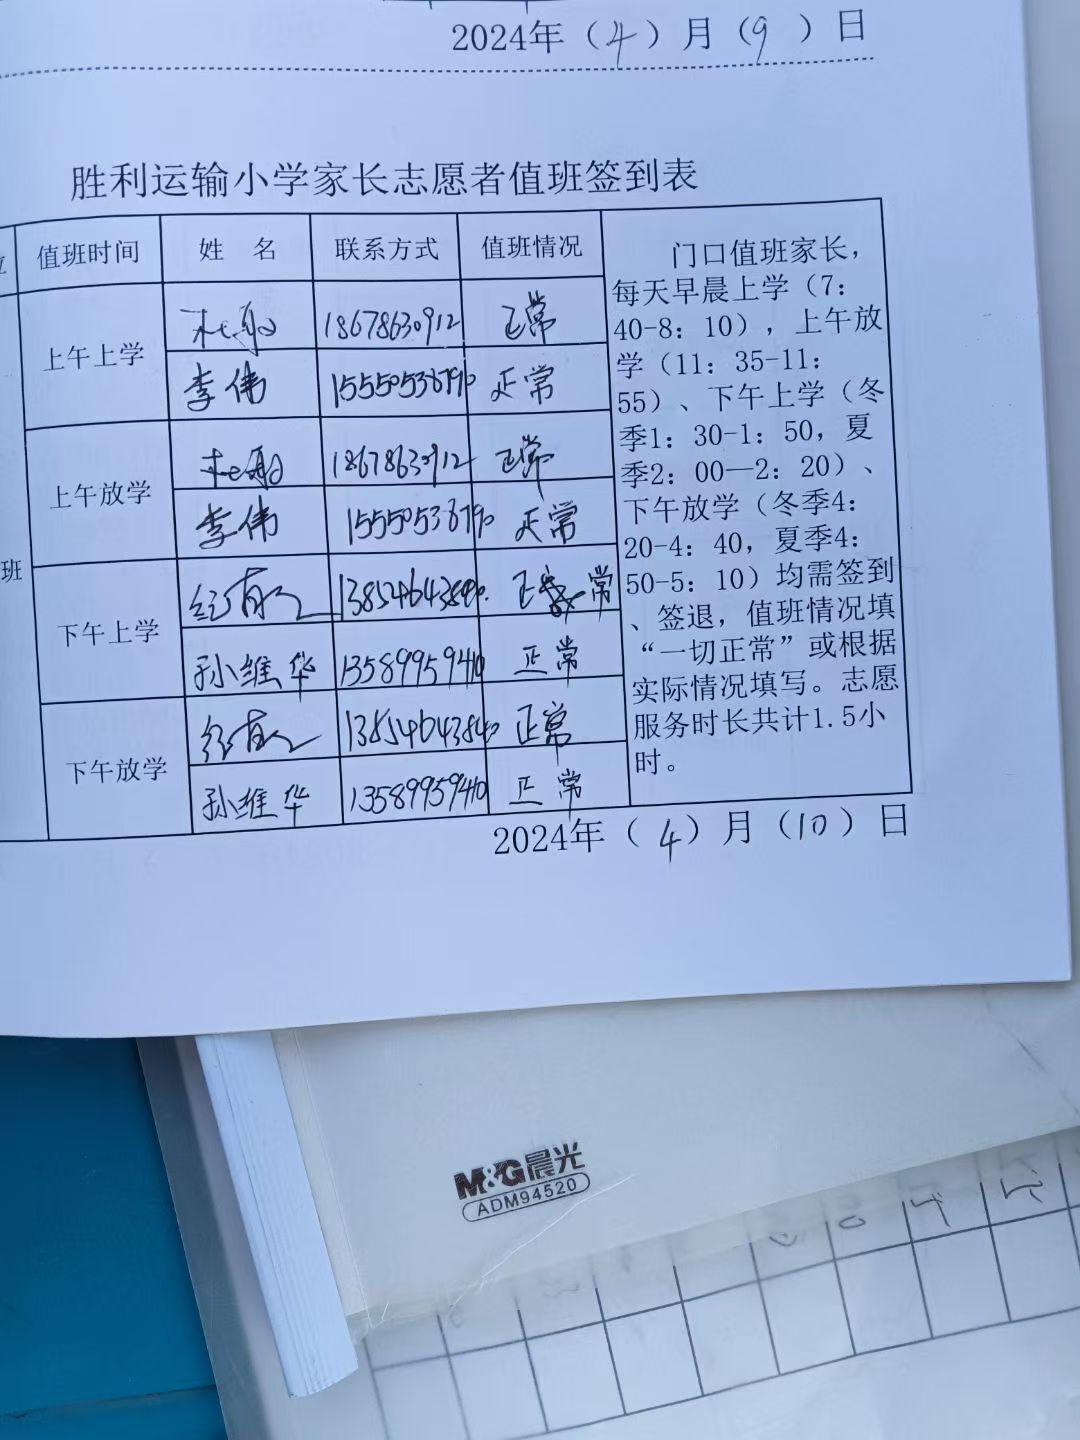 2024年（4）月（9）日
胜利运输小学家长志愿者值班签到表
值班时间 姓 名 联系方式 值班情况
上午上学
18678630912 正常
李伟 正常
上午放学
18678630912 正常
李伟 正常
班
下午上学
正常
孙维华 13589959410 正常
下午放学
正常
孙维华 13589959410 正常
门口值班家长，
每天早晨上学（7：
40-8：10），上午放
学（11：35-11：
55）、下午上学（冬
季1：30-1：50，夏
季2：00—2：20）、
下午放学（冬季4：
20-4：40，夏季4：
50-5：10）均需签到
、签退，值班情况填
“一切正常”或根据
实际情况填写。志愿
服务时长共计1.5小
时。
2024年（4）月（10）日
M&G晨光
ADM94520